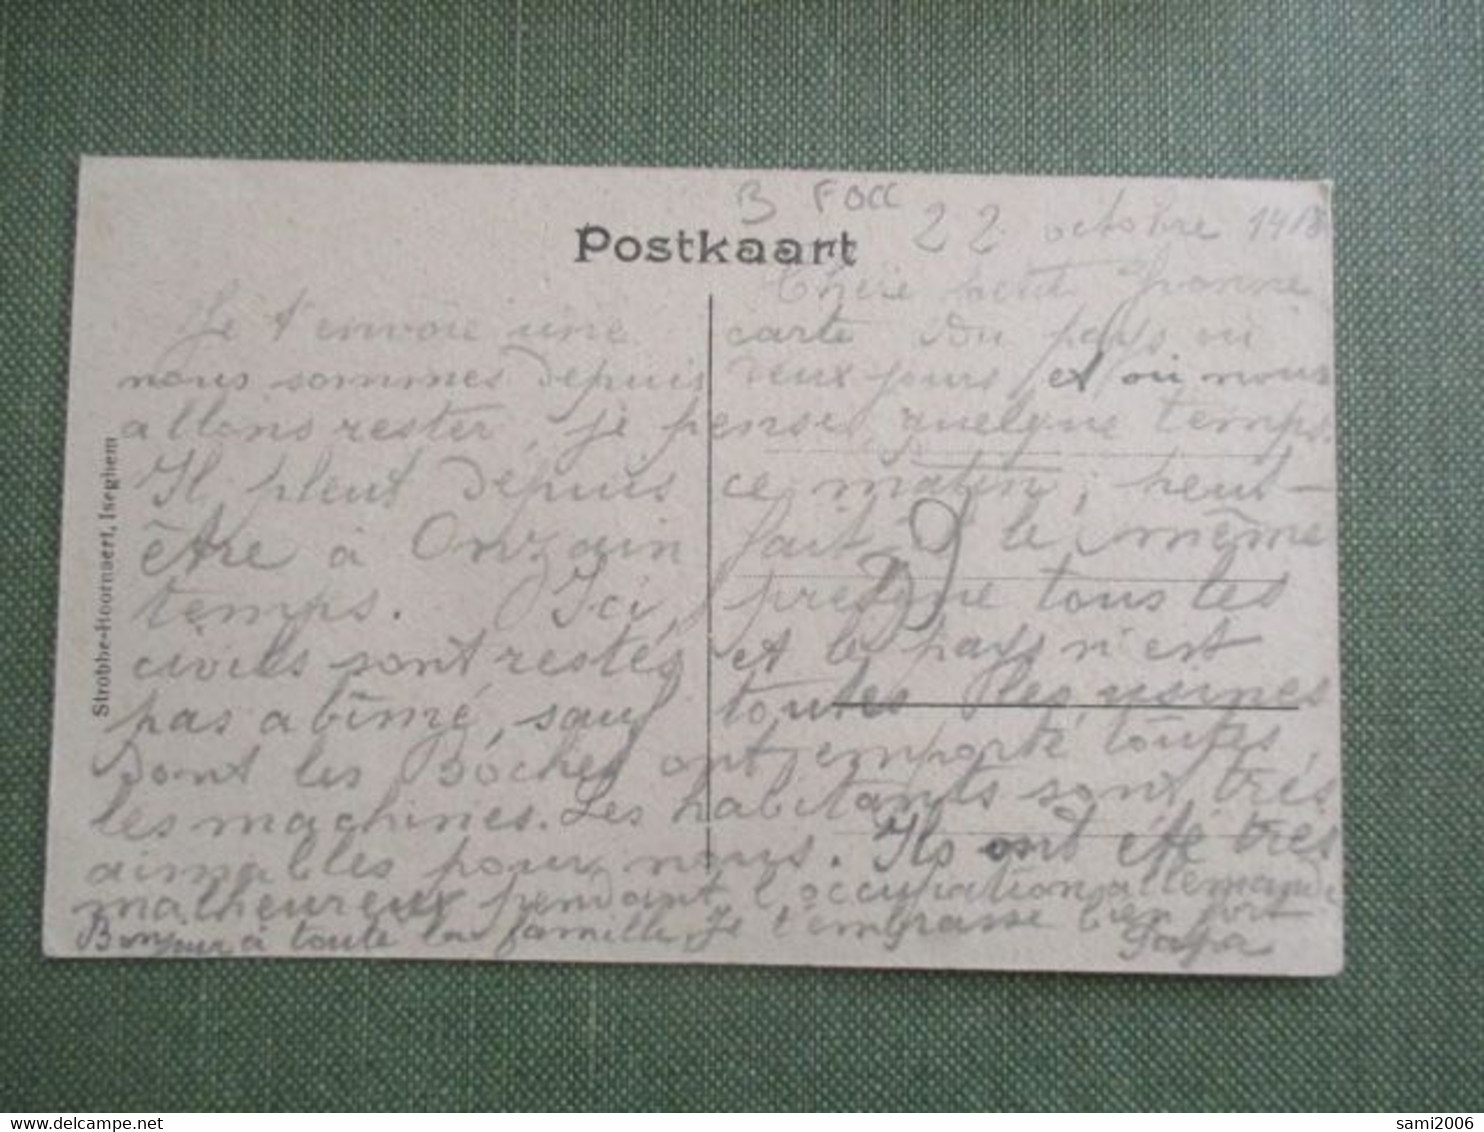 B FOCC
Postkaart
22 octobre 1918
Chère petite Yvonne
Je t'envoie une carte du pays où
nous sommes depuis deux jours et où nous
allons rester, je pense, quelque temps.
Il pleut depuis ce matin, peut-
être à Onzain fait-il le même
temps. Ici, presque tous les
civils sont restés et le pays n'est
pas abîmé, sauf toutes les usines
dont les Boches ont emporté toutes
les machines. Les habitants sont très
aimables pour nous. Ils ont été très
malheureux pendant l'occupation allemande
Bonjour à toute la famille, Je t'embrasse bien fort
Papa
Strobbe-Hoornaert, Iseghem
sami2006